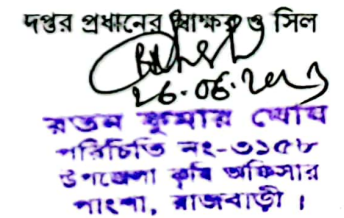 দপ্তর প্রধানের স্বাক্ষর ও সিল
২৬.০৬.২০২৩
রতন কুমার ঘোষ
পরিচিতি নং-৩১৫৮
উপজেলা কৃষি অফিসার
পাংশা, রাজবাড়ী ।